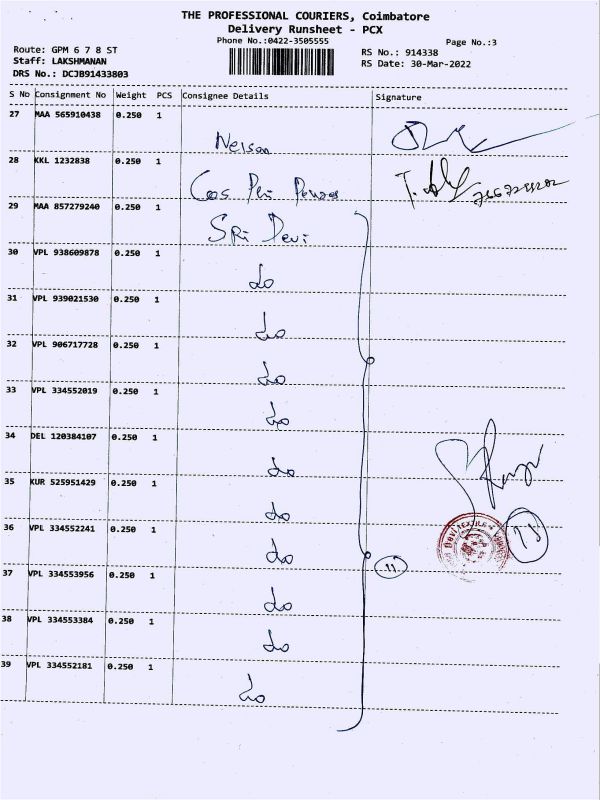 THE PROFESSIONAL COURIERS, Coimbatore
Delivery Runsheet - PCX
Phone No.:0422-3505555
Page No.:3
Route: GPM 6 7 8 ST
Staff: LAKSHMANAN
DRS No.: DCJB91433803
RS No.: 914338
RS Date: 30-Mar-2022
S No Consignment No Weight PCS Consignee Details Signature
27 MAA 565910438 0.250 1
Nelson
28 KKL 1232838 0.250 1
29 MAA 857279240 0.250 1
SRi Devi
30 VPL 938609878 0.250 1
do
31 VPL 939021530 0.250 1
do
32 VPL 906717728 0.250 1
do
33 VPL 334552019 0.250 1
do
34 DEL 120384107 0.250 1
do
35 KUR 525951429 0.250 1
do
36 VPL 334552241 0.250 1
do
37 VPL 334553956 0.250 1
11
do
38 VPL 334553384 0.250 1
do
39 VPL 334552181 0.250 1
do